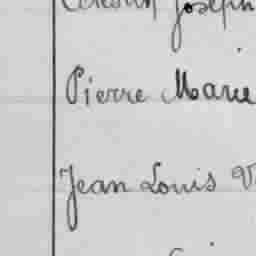 Joseph
Pierre Marie
Jean Louis